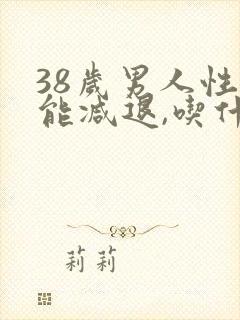 38歲男人性
能減退,喫什
莉莉